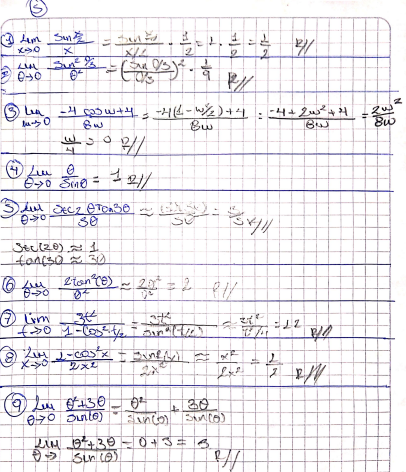 5
① Lim x→0 sen x/2 / x = sen x/2 / x/2 · 1/2 = 1 · 1/2 = 1/2 R//
② Lim θ→0 sen² θ/3 / θ² = (sen θ/3 / θ/3)² · 1/9 R//
③ Lim w→0 -4 cos w+4 / 8w = -4(1-w²/2)+4 / 8w = -4+2w²+4 / 8w = 2w² / 8w
w/4 = 0 R//
④ Lim θ→0 θ / senθ = 1 R//
5 Lim θ→0 sec2θ tan3θ / 3θ ≈
sec(2θ) ≈ 1
tan(3θ) ≈ 3θ
⑥ Lim θ→0 2tan²(θ) / θ² ≈ 2θ² / θ² = 2 R//
⑦ Lim t→0 3t² / 1-cos² t/2 = 3t² / sen²(t/2) ≈ = 12 R//
⑧ Lim x→0 1-cos²x / 2x² = sen²(x) / 2x² ≈ x² / 2x² = 1/2 R//
⑨ Lim θ→0 θ²+3θ / sen(θ) = θ² / sen(θ) + 3θ / sen(θ)
Lim θ→ θ²+3θ / sen(θ) = 0+3 = 3 R//